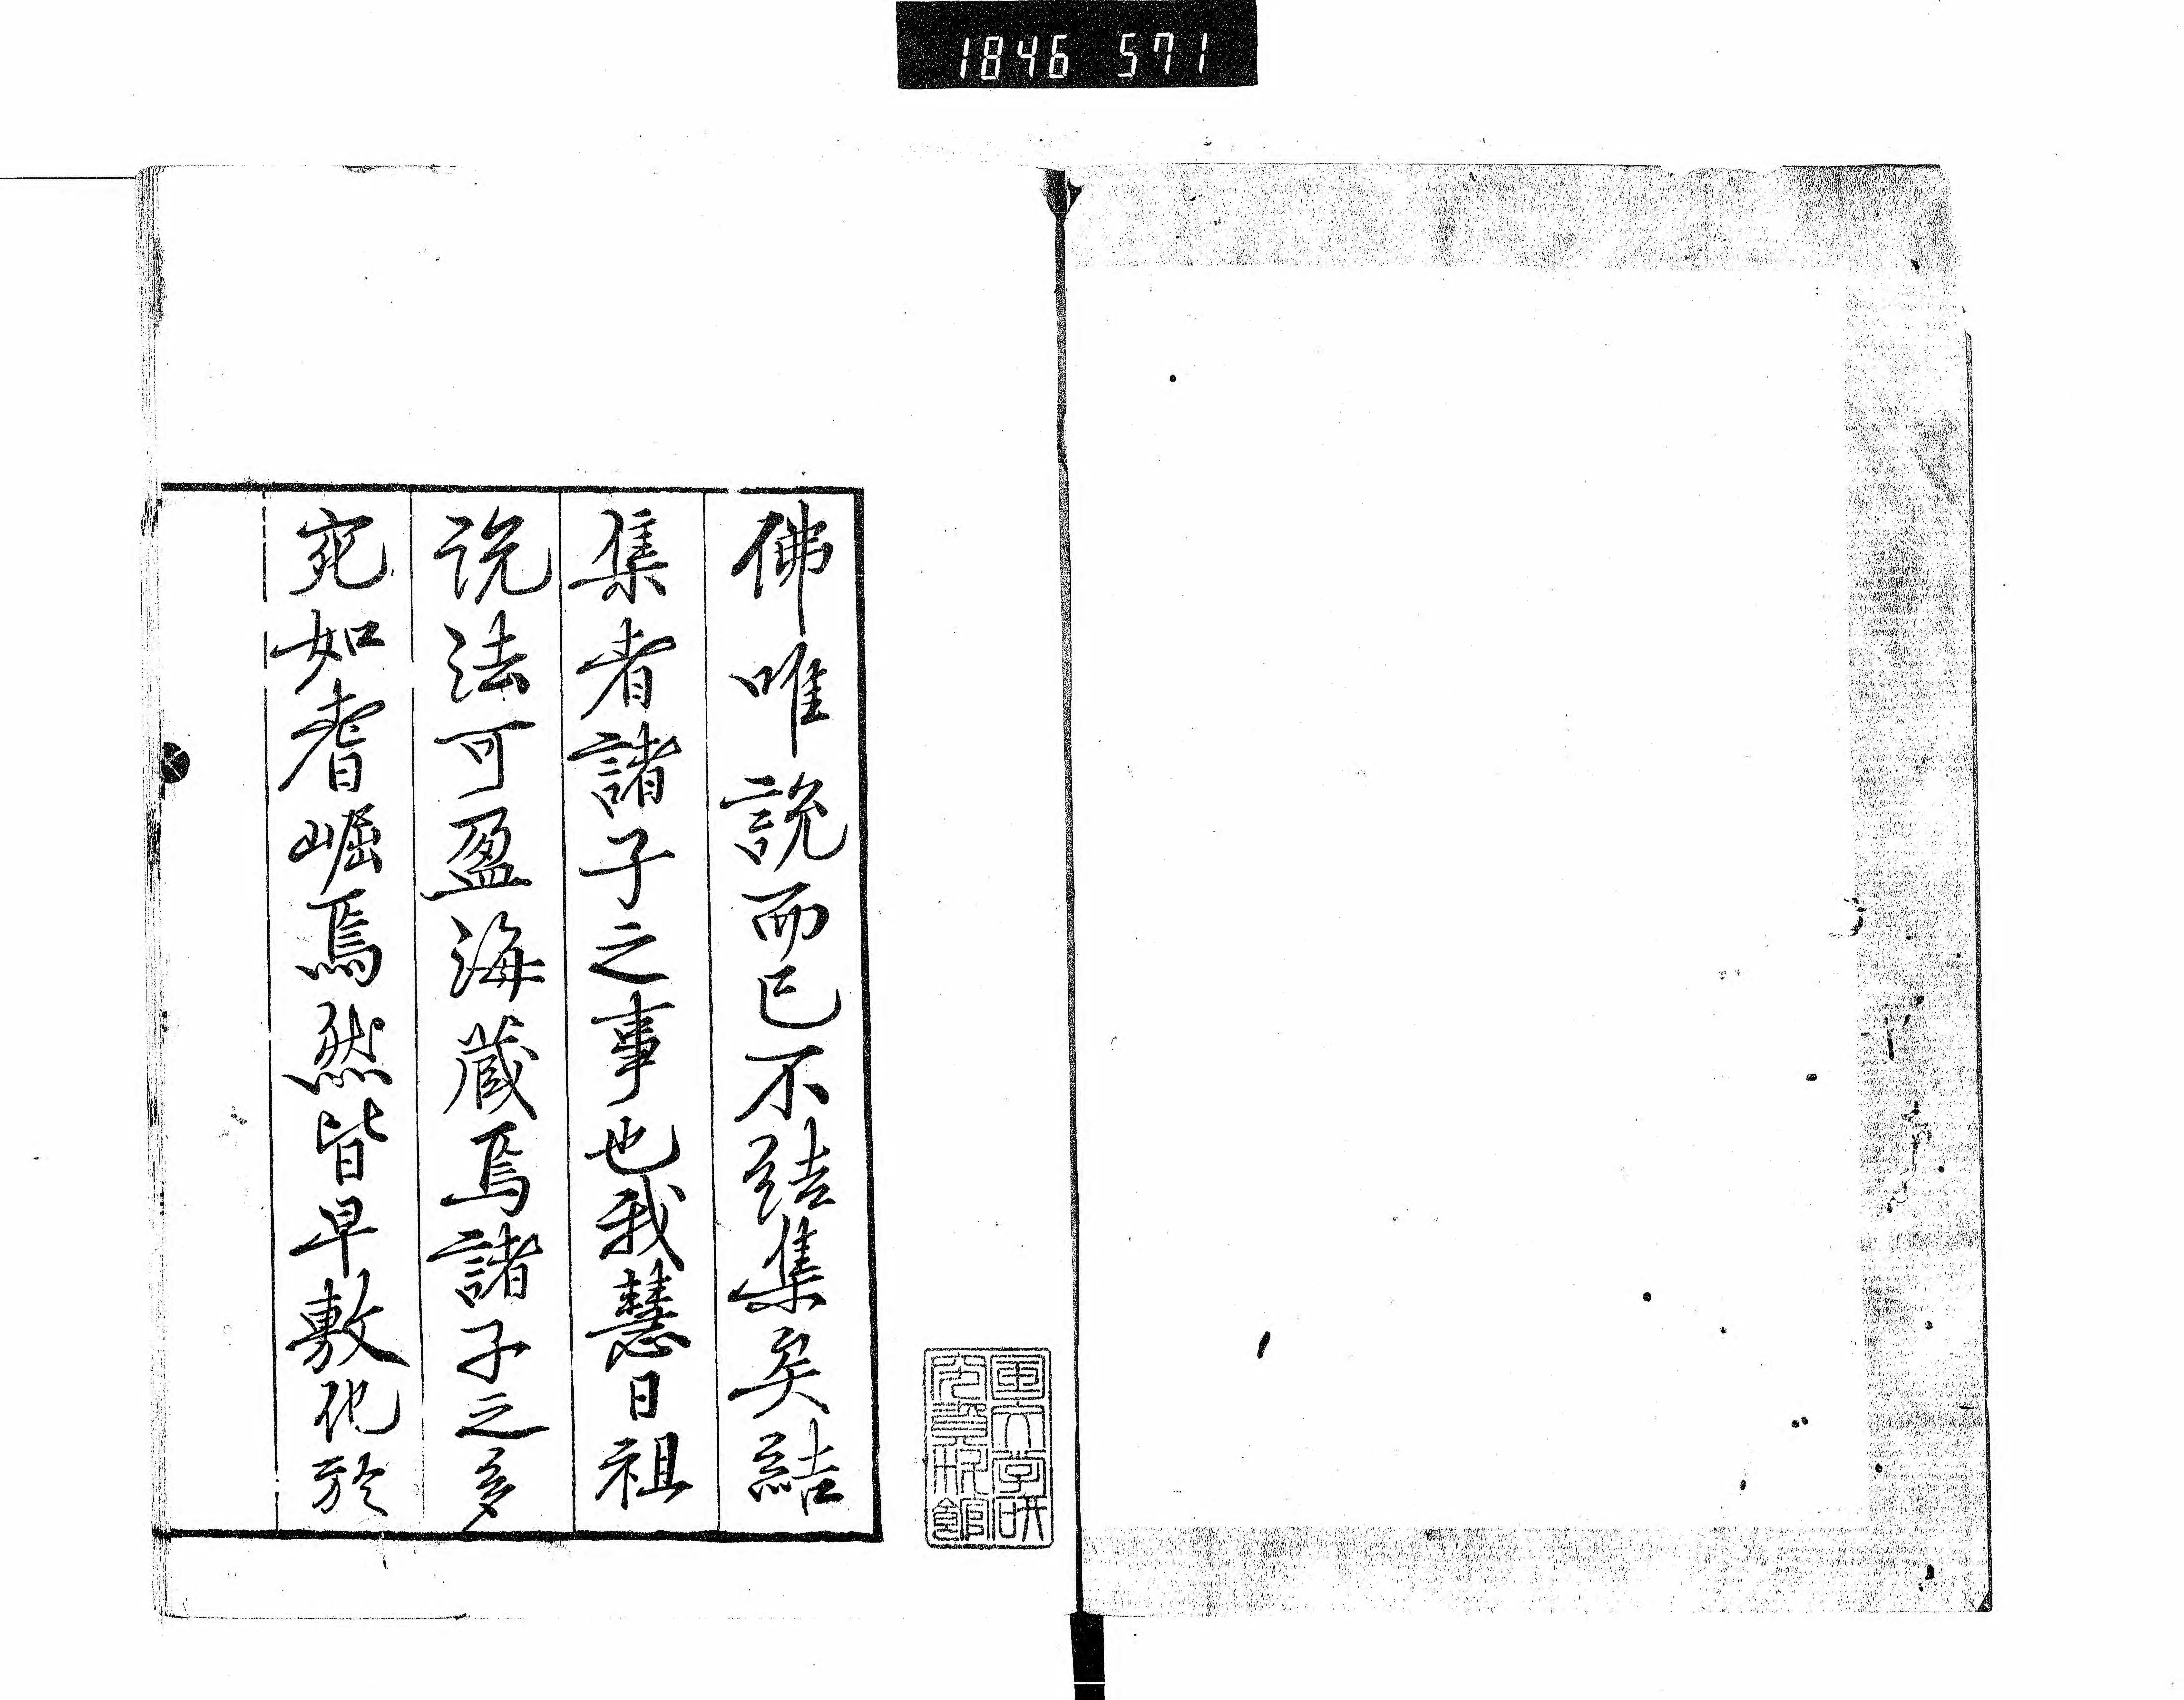 1846 571
佛唯說而已不結集矣結
集者諸子之事也我慧日祖
説法可盈海蔵焉諸子之多
宛如耆崛焉然皆早敷化於